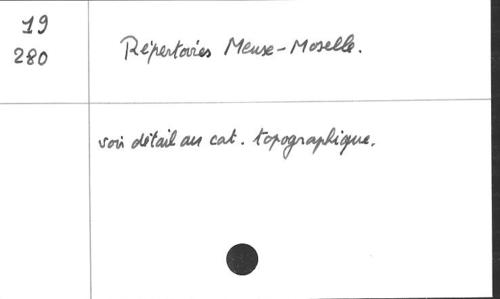 19
280
Répertoires Meuse-Moselle.
voir détail au cat. topographique.